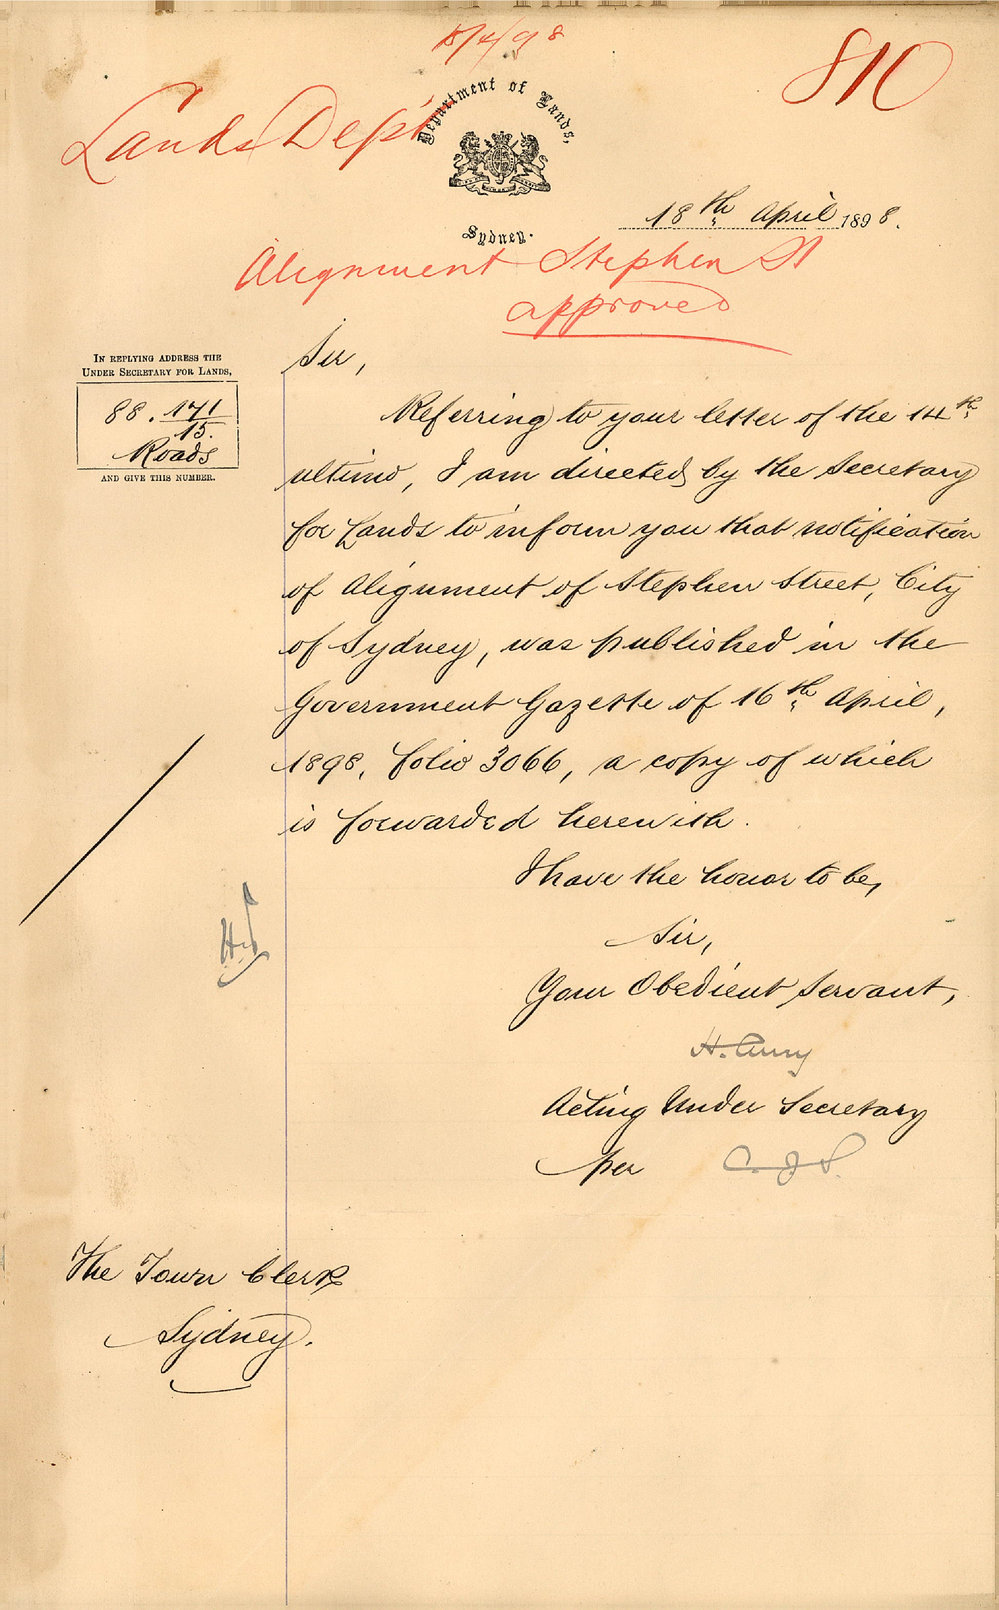 18/4/98
810
Lands Dep't
Department of Lands,
Sydney.
18th April 1898.
Alignment Stephen St
approved
IN REPLYING ADDRESS THE
UNDER SECRETARY FOR LANDS,
88. 171
15.
Roads
AND GIVE THIS NUMBER.
Sir,
Referring to your letter of the 14th
ultimo, I am directed by the Secretary
for Lands to inform you that notification
of Alignment of Stephen Street, City
of Sydney, was published in the
Government Gazette of 16th April,
1898, folio 3066, a copy of which
is forwarded herewith.
I have the honor to be,
Sir,
Your Obedient Servant,
H. Curry
Acting Under Secretary
per C. J. S.
The Town Clerk
Sydney.